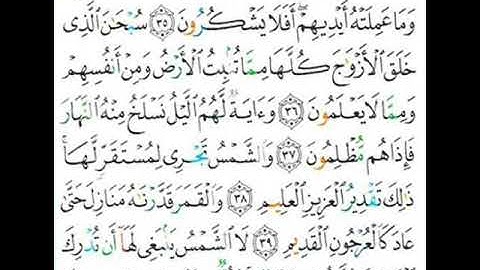 وَمَا عَمِلَتْهُ أَيْدِيهِمْ ۖ أَفَلَا يَشْكُرُونَ ٣٥ سُبْحَٰنَ ٱلَّذِى
خَلَقَ ٱلْأَزْوَٰجَ كُلَّهَا مِمَّا تُنۢبِتُ ٱلْأَرْضُ وَمِنْ أَنفُسِهِمْ
وَمِمَّا لَا يَعْلَمُونَ ٣٦ وَءَايَةٌ لَّهُمُ ٱلَّيْلُ نَسْلَخُ مِنْهُ ٱلنَّهَارَ
فَإِذَا هُم مُّظْلِمُونَ ٣٧ وَٱلشَّمْسُ تَجْرِى لِمُسْتَقَرٍّ لَّهَا ۚ
ذَٰلِكَ تَقْدِيرُ ٱلْعَزِيزِ ٱلْعَلِيمِ ٣٨ وَٱلْقَمَرَ قَدَّرْنَٰهُ مَنَازِلَ حَتَّىٰ
عَادَ كَٱلْعُرْجُونِ ٱلْقَدِيمِ ٣٩ لَا ٱلشَّمْسُ يَنۢبَغِى لَهَآ أَن تُدْرِكَ